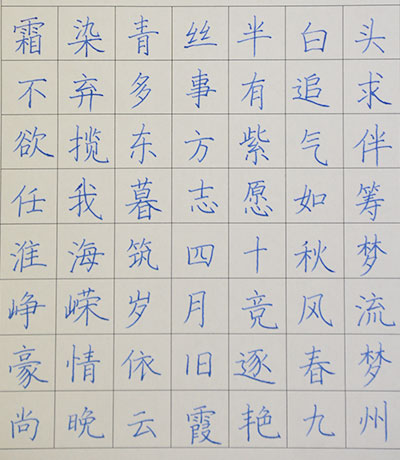 霜染青丝半白头
不弃多事有追求
欲揽东方紫气伴
任我暮志愿如筹
淮海筑四十秋梦
峥嵘岁月竞风流
豪情依旧逐春梦
尚晚云霞艳九州